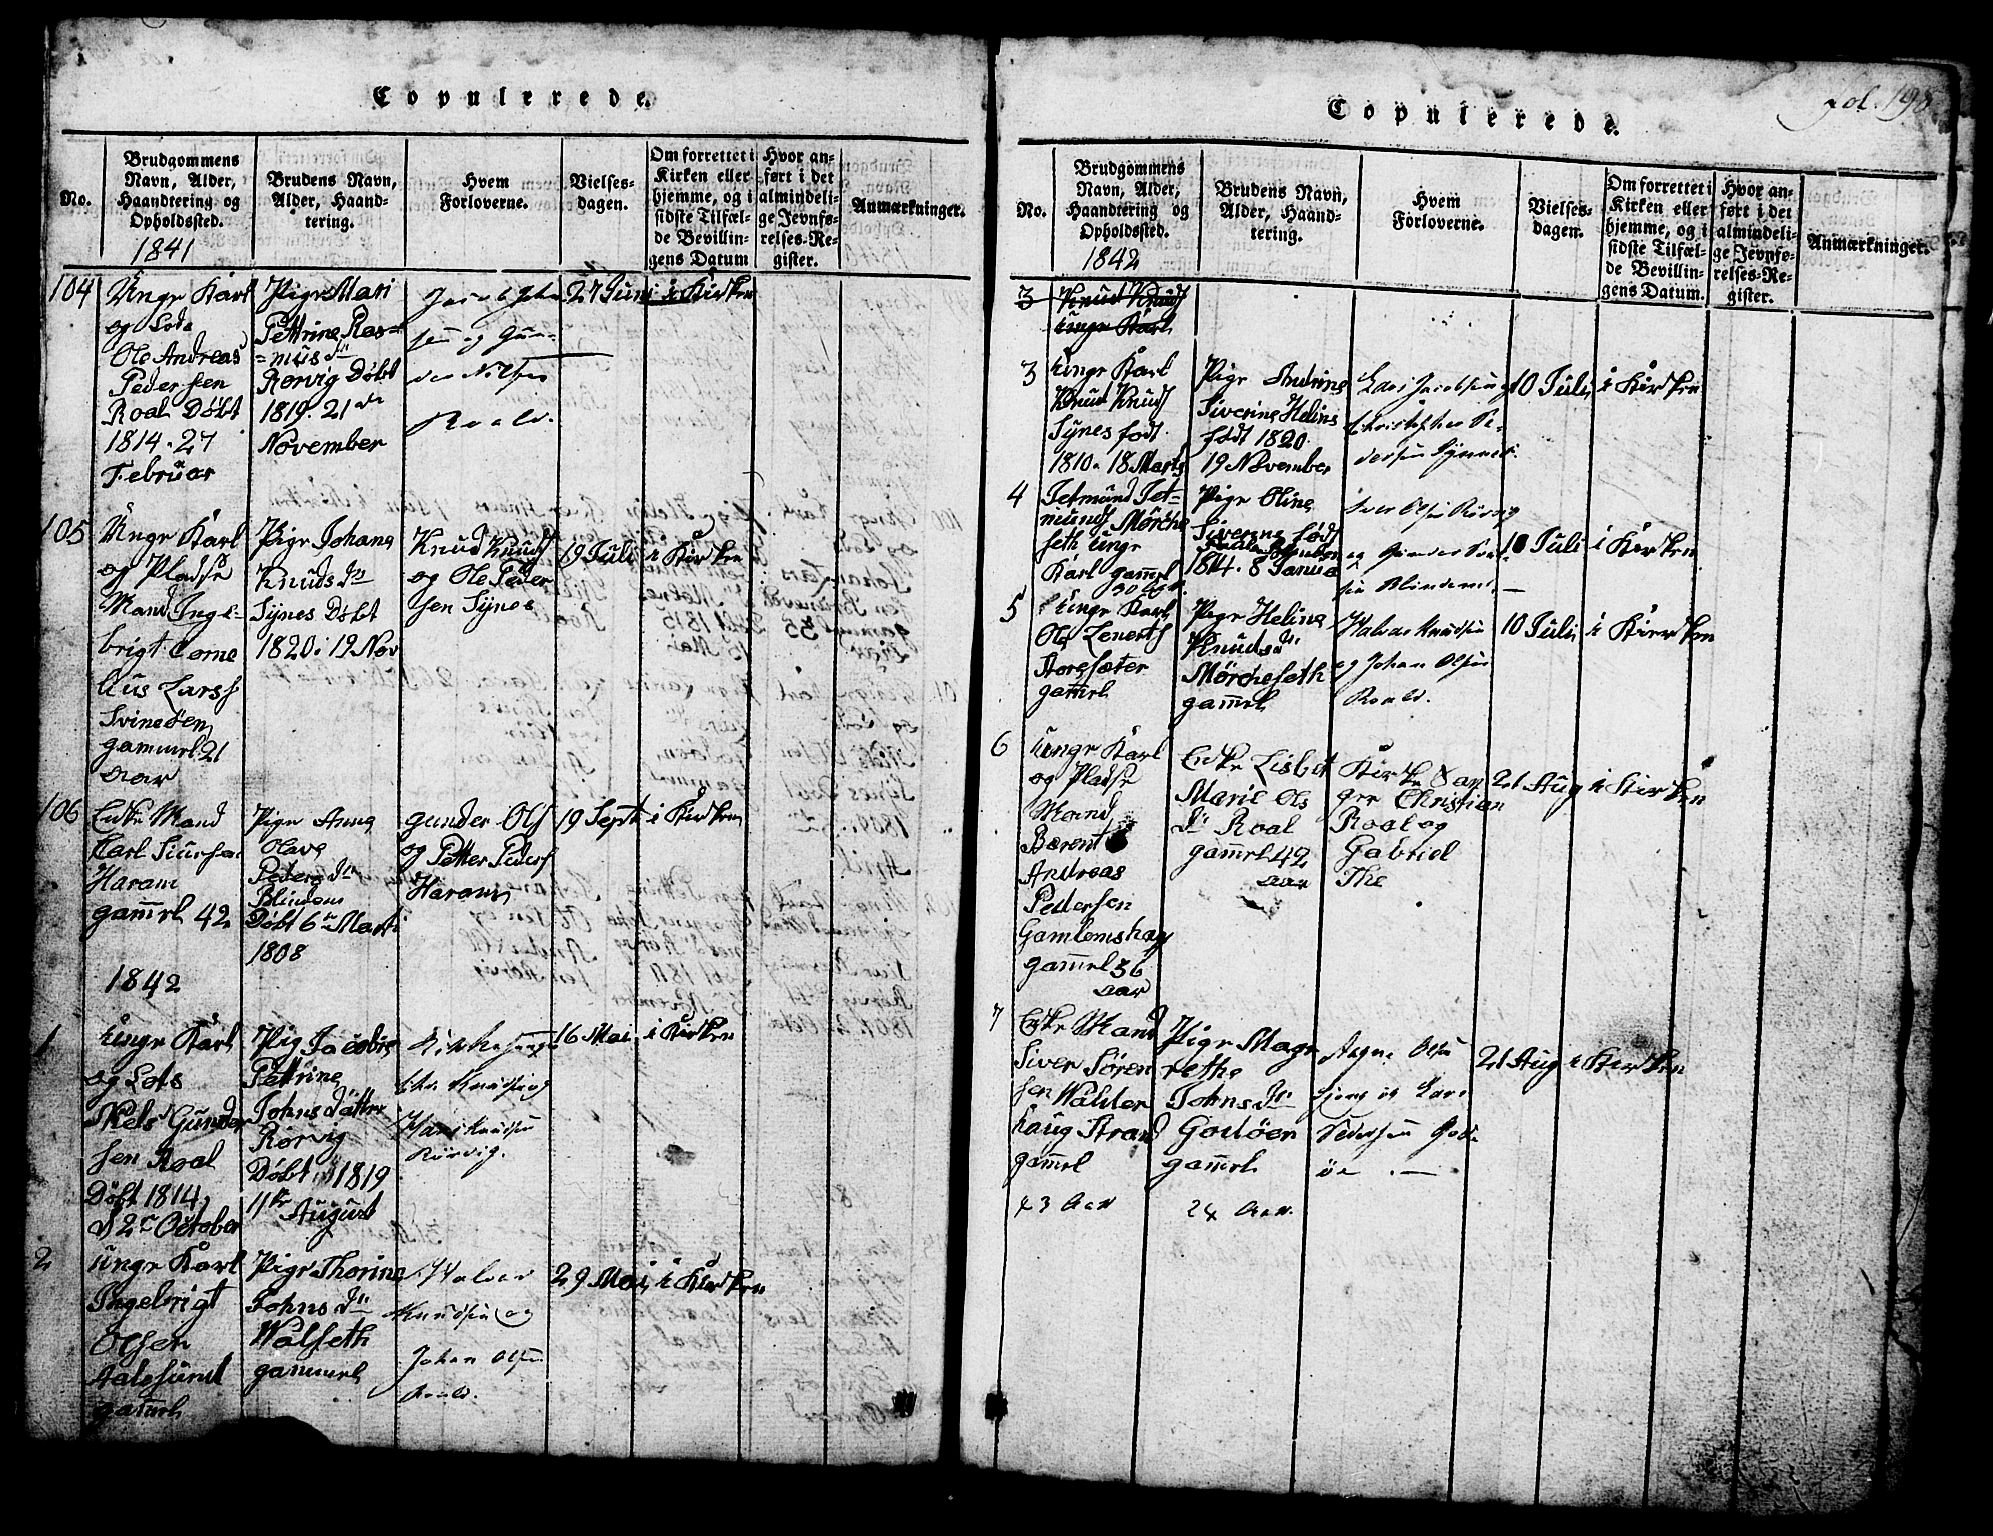 Copulerede.
No.
Brudgommens
Navn, Alder,
Haandtering og
Opholdssted.
1841
Brudens Navn,
Alder, Haand-
tering.
Hvem
Forloverne.
Vielses-
dagen.
Om forrettet i
Kirken eller
hjemme, og i
sidste Tilfæl-
de Bevillin-
gens Datum
Hvor an-
ført i det
almindeli-
ge Jevnfø-
relses-Re-
gister.
Anmærkninger.
104
Unge Karl
og Lods
Ole Andreas
Pedersen
Roal Døbt
1814. 27
Februar
Pige Mari
Pettrine Ras-
=mus dr
Rørvig Døbt
1819. 21 de
November
Jacob John
sen og Gun-
der Nilsen
Roald.
27 Juni
i Kirken
105
Unge Karl
og Pladse
Mand Inge
brigt Corne
lius Larss
Svinøen
gammel 21
aar
Pige Johana
Knuds dr
Synes Døbt
1820. 19 Nov
Knud Knuds
og Ole Peder
sen Synes
19 Juli
i Kirken
106
Enke Mand
Karl Siursen
Haram
gaml 42
Pige Anna
Olava
Peders dr
Blindem
Døbt 6te Marti
1808
gunder Ols
og Petter Peders
Haram
19 Sept
i Kirken
1842
1
Unge Karl
og Lots
Nels Gunder
sen Roal
Døbt 1814
d 2e October
Pig Jacobie
Pettrine
Johns datter
Rørvig
Døbt 1819
11te August
Kirkesanger
Chr Knudsen og
Hans Knudsen
Rørvig.
16 Mai
i Kirken
2
Unge Karl
Ingebrigt
Olsen
Aalesund
gaml
Pige Thorine
Johns dr
Walseth
gammel
Halvor
Knudsen og
Johan Olsen
Roald.
29 Mai
i Kirken
Copulerede.
Fol. 198
No.
Brudgommens
Navn, Alder,
Haandtering og
Opholdssted.
1842
Brudens Navn,
Alder, Haand-
tering.
Hvem
Forloverne.
Vielses-
dagen.
Om forrettet i
Kirken eller
hjemme, og i
sidste Tilfæl-
de Bevillin-
gens Datum.
Hvor an-
ført i det
almindeli-
ge Jevnfø-
relses-Re-
gister.
Anmærkninger.
3
Knud Knuds
Unge Karl
3
Unge Karl
Knud Knuds
Synes født
1810. 18 Marts
Pige Andrine
Siverine Helins
født 1820
19 November
Lars Jacobsen og
Christopher Pe-
dersen Synnes.
10 Juli
i Kirken
4
Jetmund Jet-
munds Mørche
seth Unge
Karl gaml
30 aar
Pige Oline
Siverine født
1814. 8 Janua
Iver Olsen Rørvig
og Gunder
Blindem.
10 Juli
i Kirken
5
Unge Karl
Ole Lenerts
Storesæter
gaml
Pige Heline
Knuds dr
Mørcheseth
gaml
Halvor Knudsen
og Johan Olsen
Roald.
10 Juli
i Kirken
6
Unge Karl
og Pladse
Mand
Bærent
Andreas
Pedersen
Gamlemshaug
gaml 36
aar
Enke Lisbet
Marie Ols
dr Roal
gaml 42
aar
Kirke San
ger Christian
Roal og
Gabriel
The
21 Aug
i Kirken
7
Enke Mand
Siver Søren
sen Walder
haug Strand
gaml
43 Aar
Pige Magr
rethe
Johns dr
Godøen
gaml
24 Aar.
Aagne Olsen
Gjerg og Lars
Pedersen God-
øe
21 Aug
i Kirken